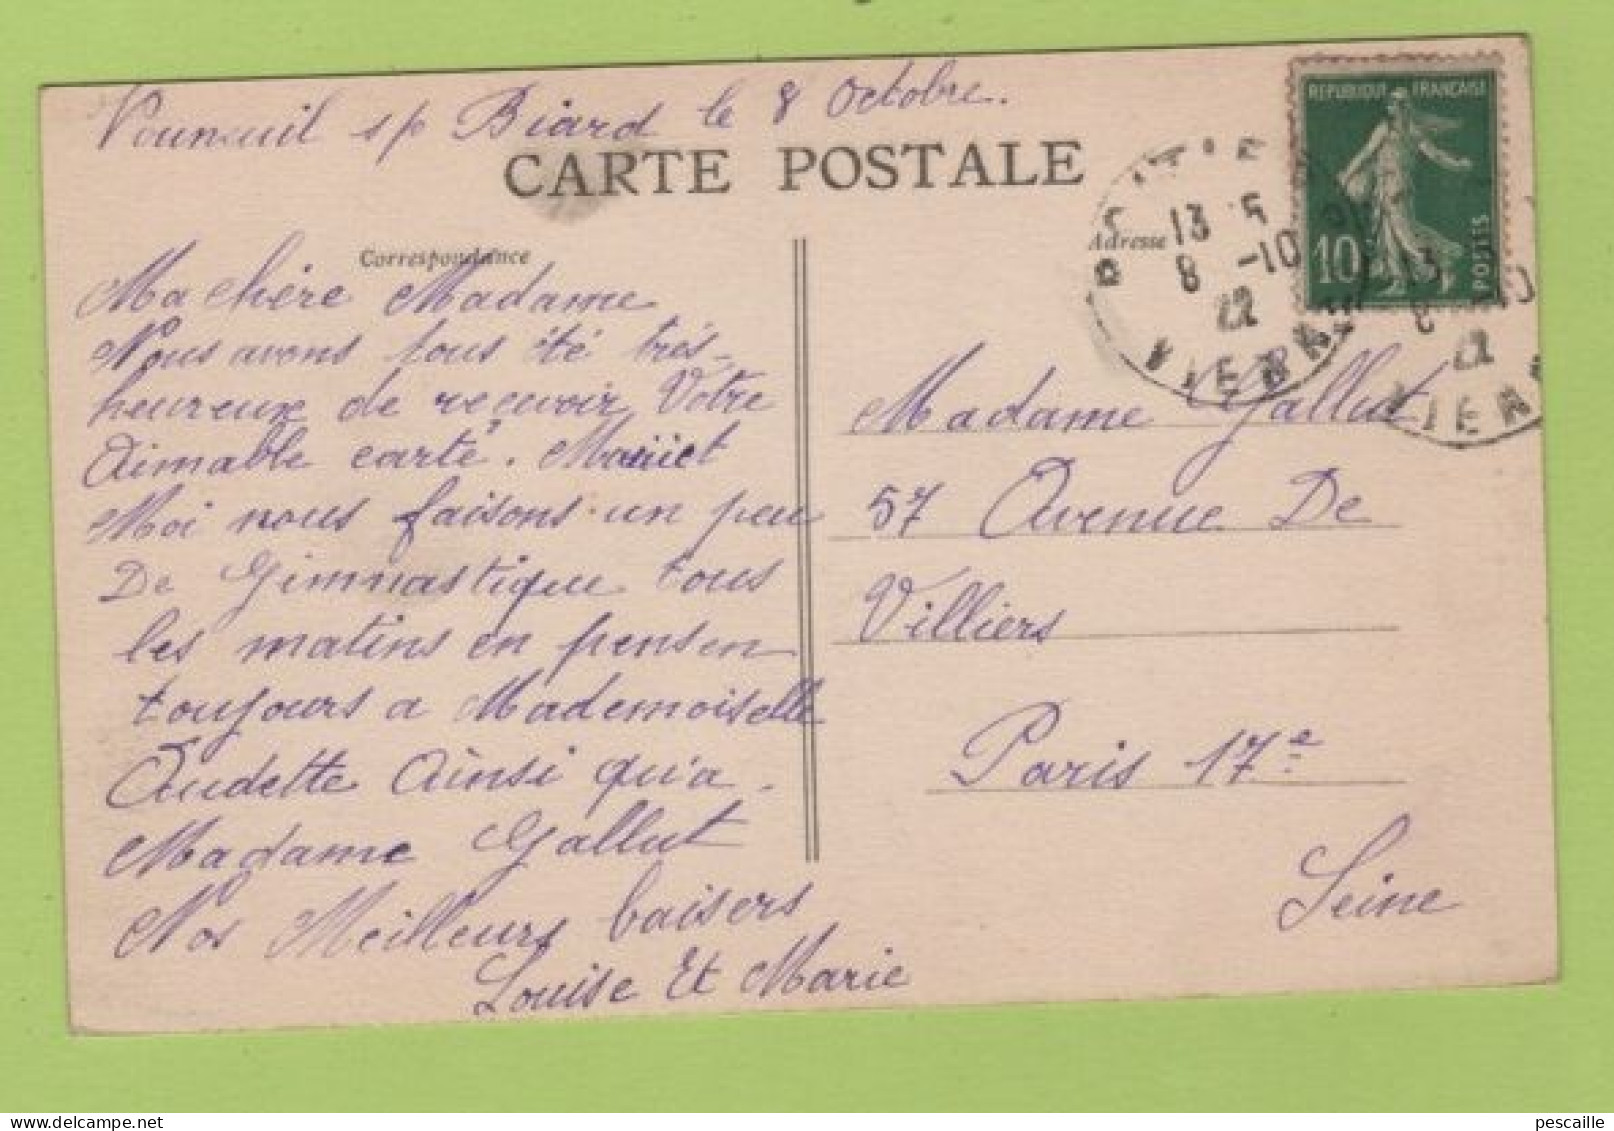 Vouneuil s/p Biard le 8 Octobre.
CARTE POSTALE
REPUBLIQUE FRANCAISE
10
POSTES
13 5
8 -10
22
VIENNE
13
8 -10
22
VIENN
Correspondance
Adresse
Ma chère Madame
Nous avons tous été très-
heureux de reçuvoir Votre
Aimable carte. Mari et
Moi nous faisons un peu
De Gimnastique tous
les matins en pensen
toujours a Mademoiselle
Oudette Ainsi qu'a
Madame Gallut
Nos Meilleurs baisers
Louise Et Marie
Madame Gallut
57 Avenue De
Villiers
Paris 17e
Seine
pescaille